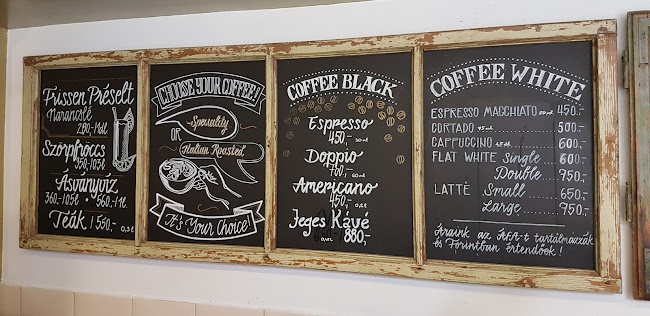 Frissen Préselt
Narancslé
280,-/1dl
Szörpfröccs
350,-/0,5l
Ásványvíz
360,-/0,5l 560,-/1l
Teák / 550,- 0,3l
CHOOSE YOUR COFFEE!
Speciality
OR
Italian Roasted
It's Your Choice!
COFFEE BLACK
Espresso
450,-
Doppio
760,-
Americano
450,-
Jeges Kávé
880,-
COFFEE WHITE
ESPRESSO MACCHIATO 450,-
CORTADO 500,-
CAPPUCCINO 600,-
FLAT WHITE Single 600,-
Double 750,-
LATTÉ Small 650,-
Large 750,-
Áraink az ÁFÁ-t tartalmazzák
és Forintban értendőek!